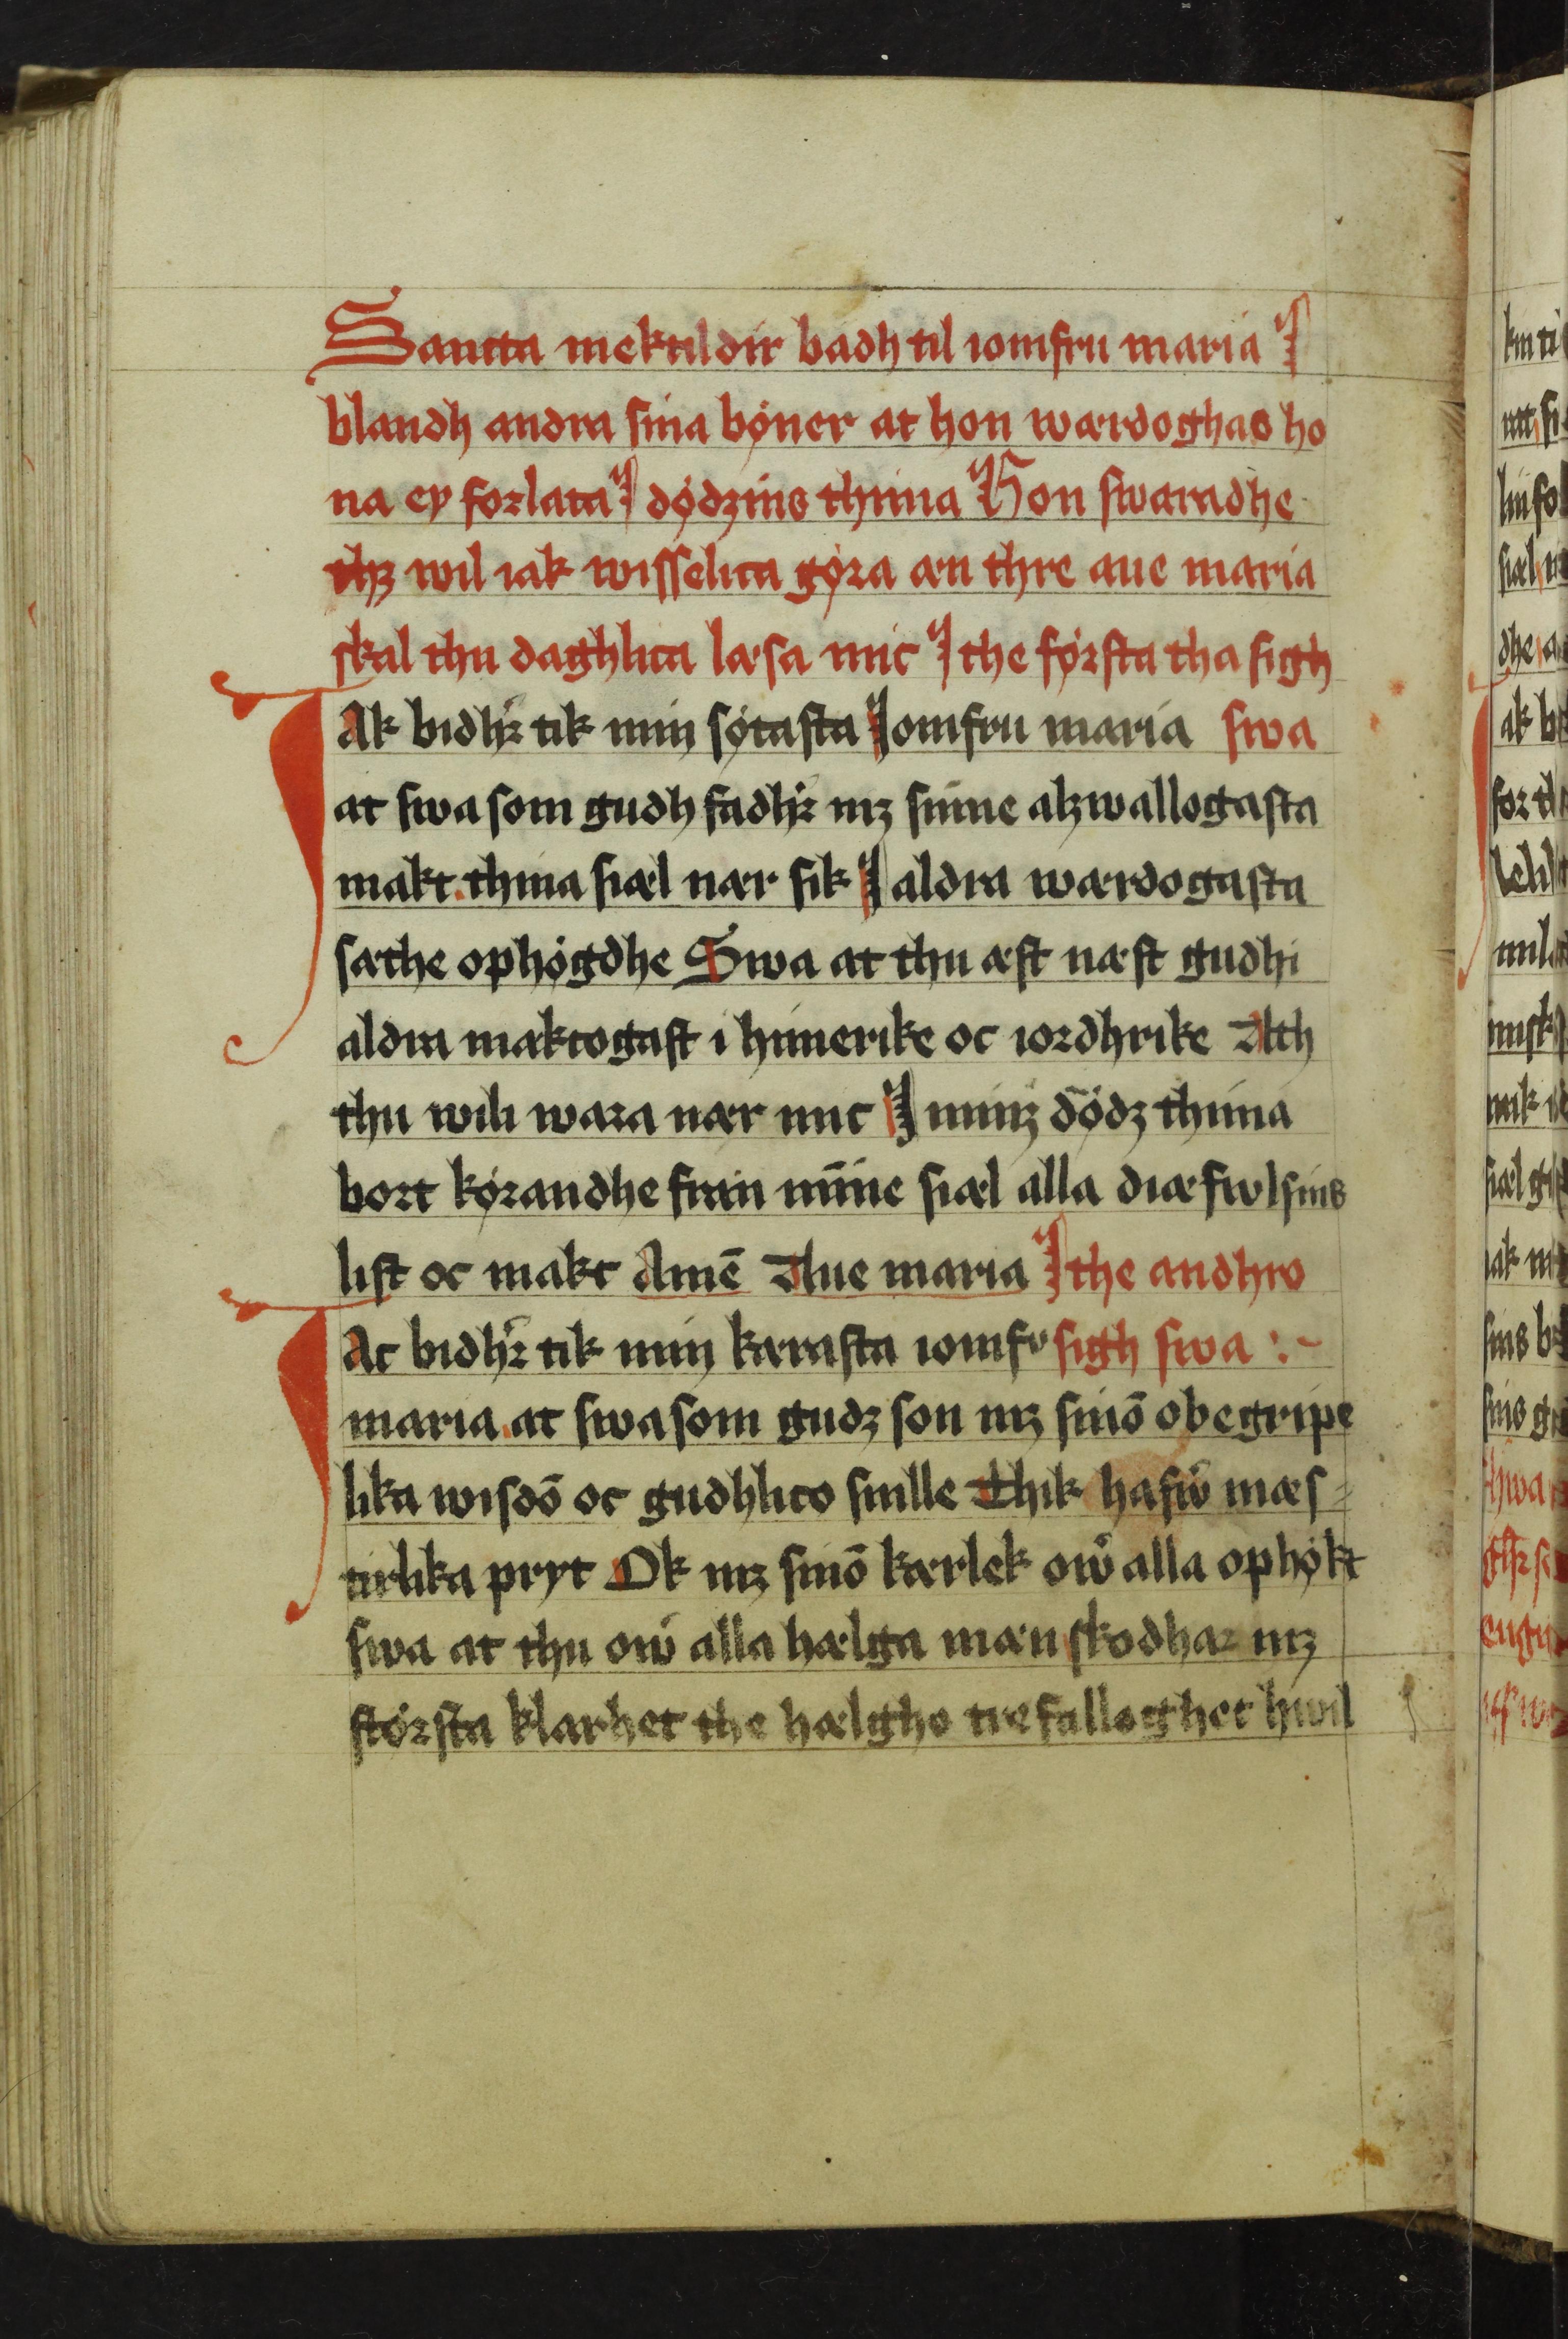 Sancta mektildir badh til iomfru maria J
blandh andra sina bøner at hon wærdoghas ho
na ey forlata J dødzins thima Hon swaradhe
thꝫ wil iak wisselica gøra æn thre aue maria
skal thu daghlica læsa mic J the første tha sigh
JAk bidhr tik min søtasta Jomfru maria swa
at swa som gudh fadhr mꝫ sinne alzwallogasta
makt thina siæl nær sik J aldra wærdogasta
sæthe ophøgdhe Swa at thu æst næst gudhi
aldra maktogast i himerike oc iordhrike Ath
thu wili wara nær mic J minꝫ dødz thima
bort kørandhe fran minne siæl alla diæfwlsins
list oc makt Amē Aue maria J the andhro
JAc bidhr tik min kærasta iomfrv sigh swa :~
maria at swa som gudz son mꝫ sinō obegripe
lika wisdō oc gudhlico snille Thik hafw̃ mæs-
tirlika pryt Ok mꝫ sinō kærlek ow̃ alla ophøkt
swa at thu ow̃ alla hælga mæn skodhar mꝫ
størsta klarhet the hælgho trefalloghet hwil